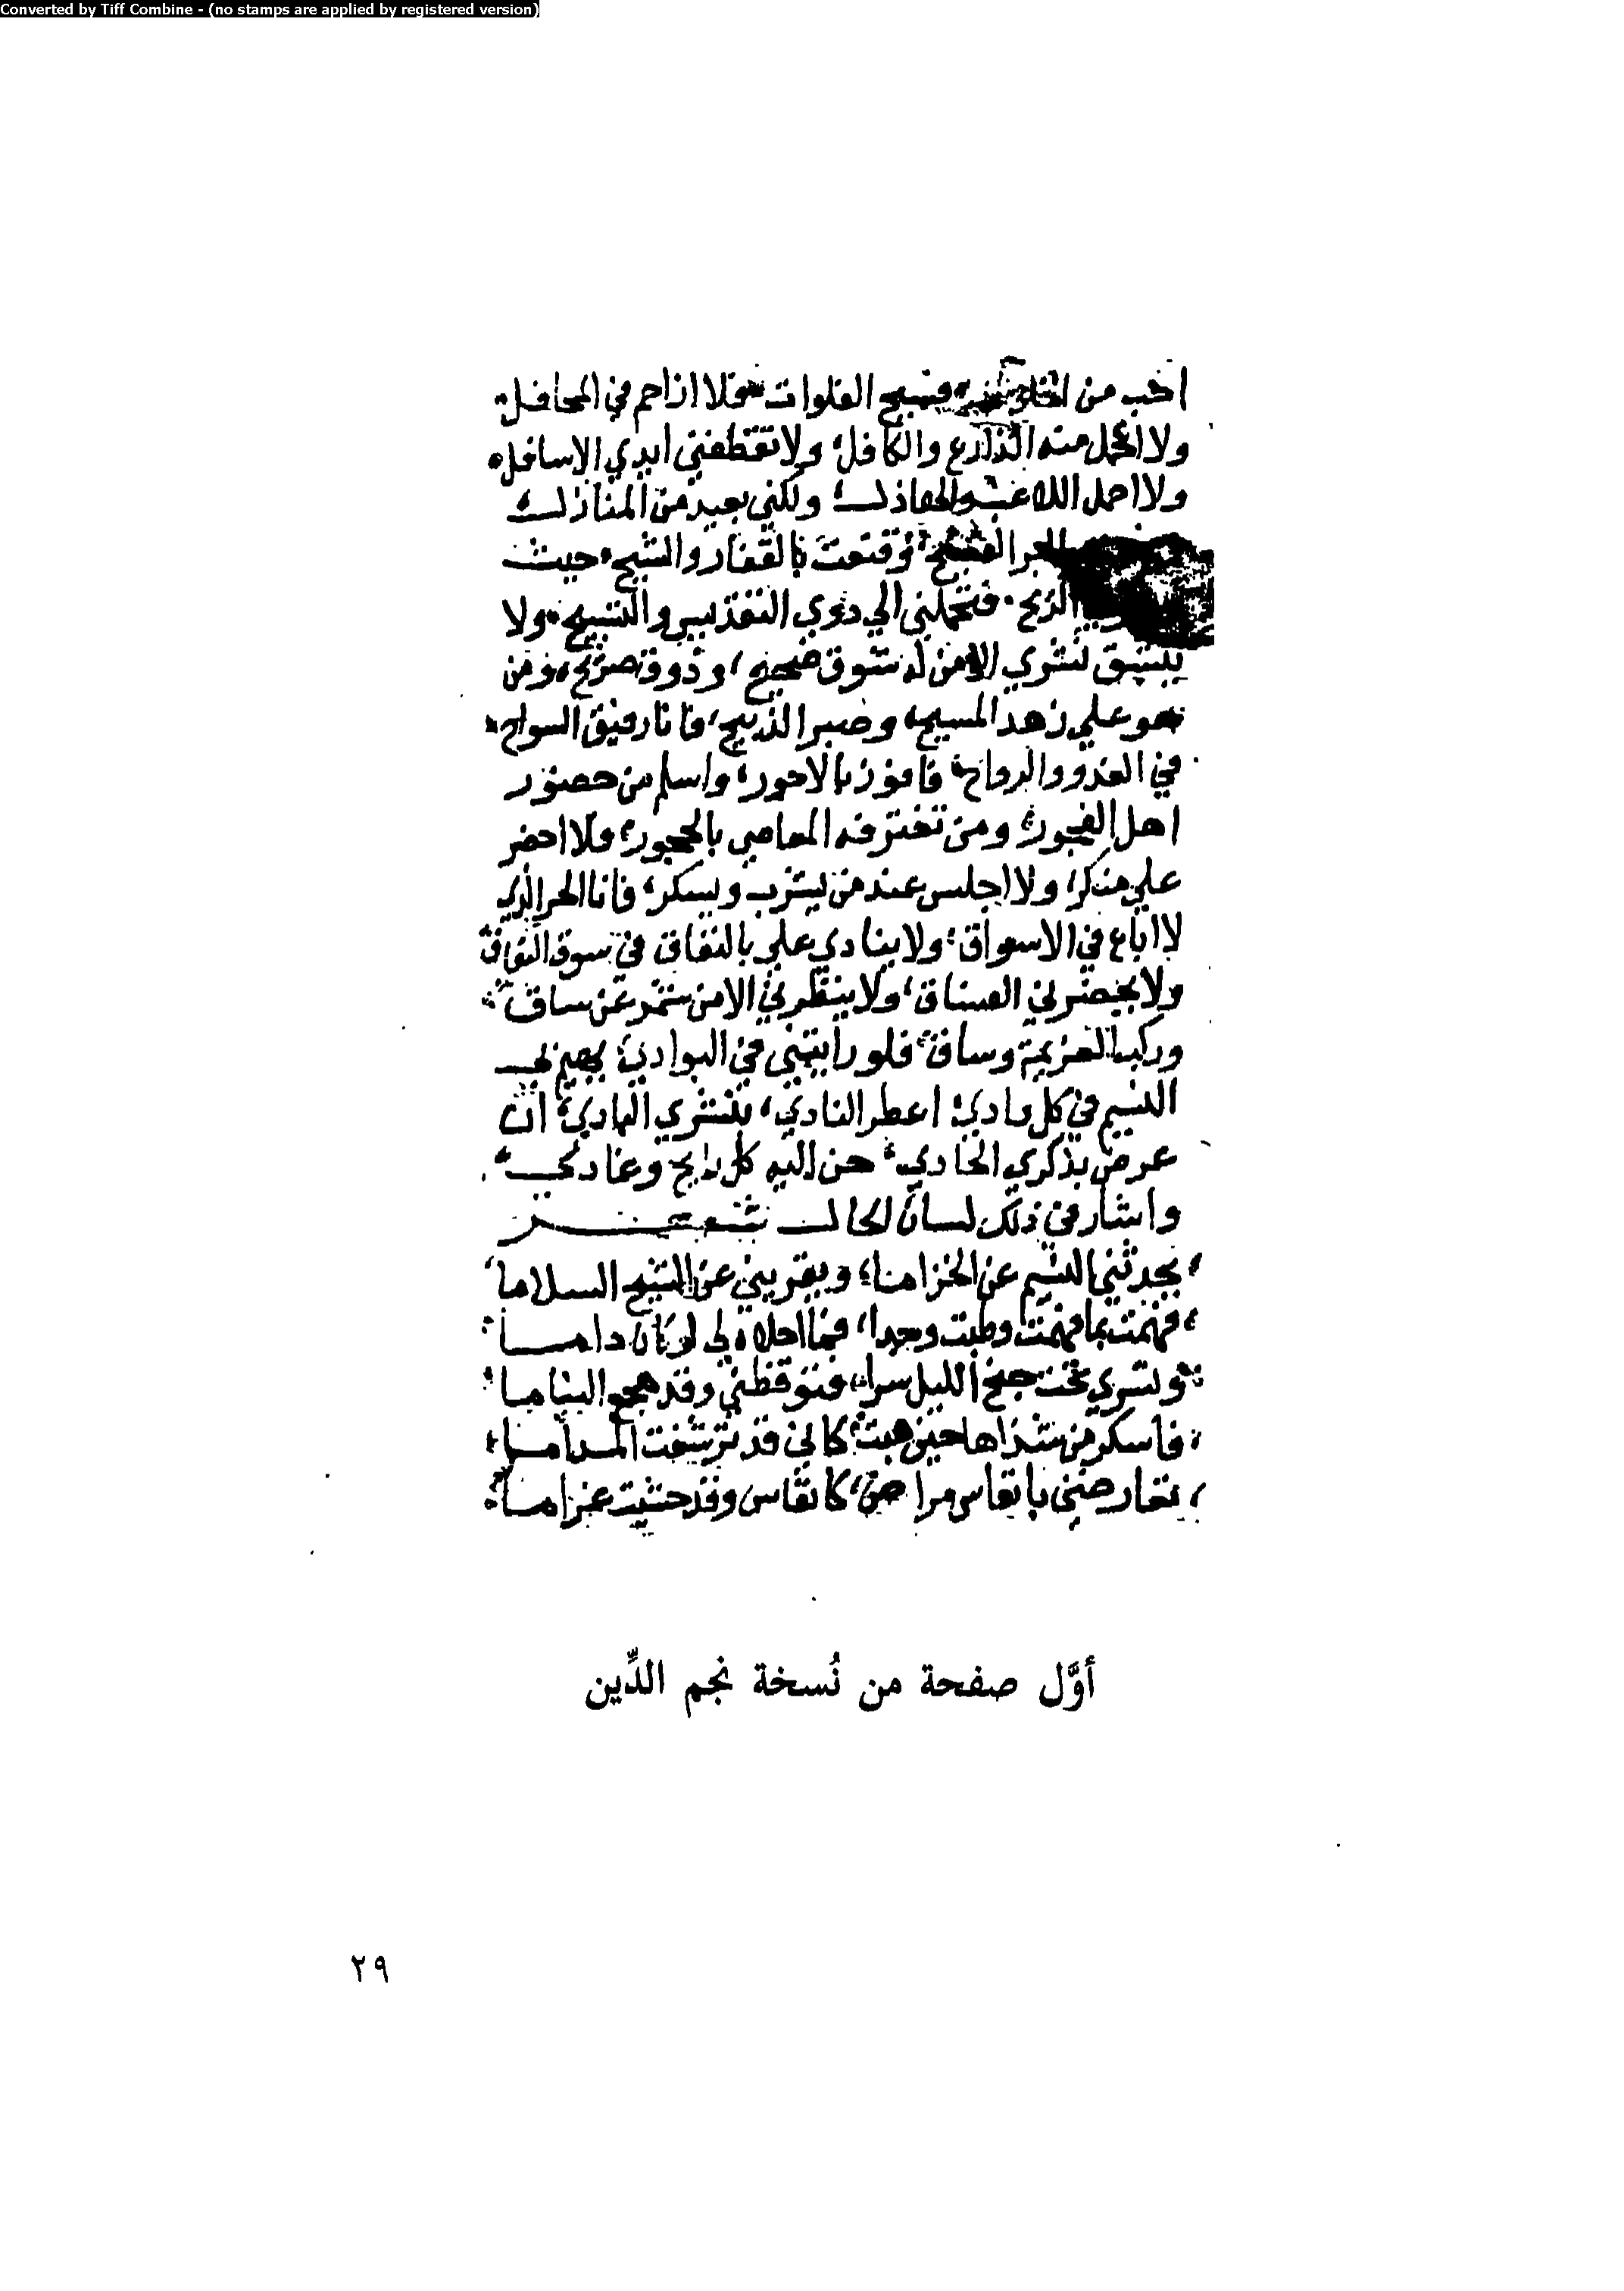 Converted by Tiff Combine - (no stamps are applied by registered version)
احب من فسيح الفلوات فلا ازاحم في المحافل
ولا والكافل ولا تقتطفني ايدي الاسافل
ولا احمل ولكني بعيد من المنازل
وقنعت بالقفار والشيح حيث
الريح فتحملني الي ذوي التقديس والتسبيح ولا
ينشق نشري الا من له شوق صحيح وذوق صريح ومن
هو علي زهد المسيح وصبر الذبيح فانا رفيق السواح
في الغدو والرواح فافوز بالاجور واسلم من حضور
اهل الفجور ومن تخترقه المعاصي بالحجور فلا احضر
علي منكر ولا اجلس عند من يشرب ويسكر فانا الحر الذي
لا اباع في الاسواق ولا ينادي علي بالنفاق في سوق النفاق
ولا يحضرني الفساق ولا ينظرني الا من شمر عن ساق
وركب العزيمة وساق فلو رايتني في البوادي
النسيم في كل وادي اعطر النادي بنشري البادي ان
عرض بذكري الحادي حن اليه كل رايح وغادي
واشار في ذلك لسان الحال شعر
يحدثني النسيم عن الخزاما ويقريني عن الشيح السلاما
فهمت بما فهمت وطبت وجدا فما احلاه لي لو كان داما
وتسري تحت جنح الليل سرا فتوقظني وقد هجع النياما
فاسكر من شذاها حين هبت كاني قد ترشفت المداما
تعارضني بانفاس مراض كانفاس وقد حشيت غراما
أوَّل صفحة من نُسخة نجم الدِّين
٢٩